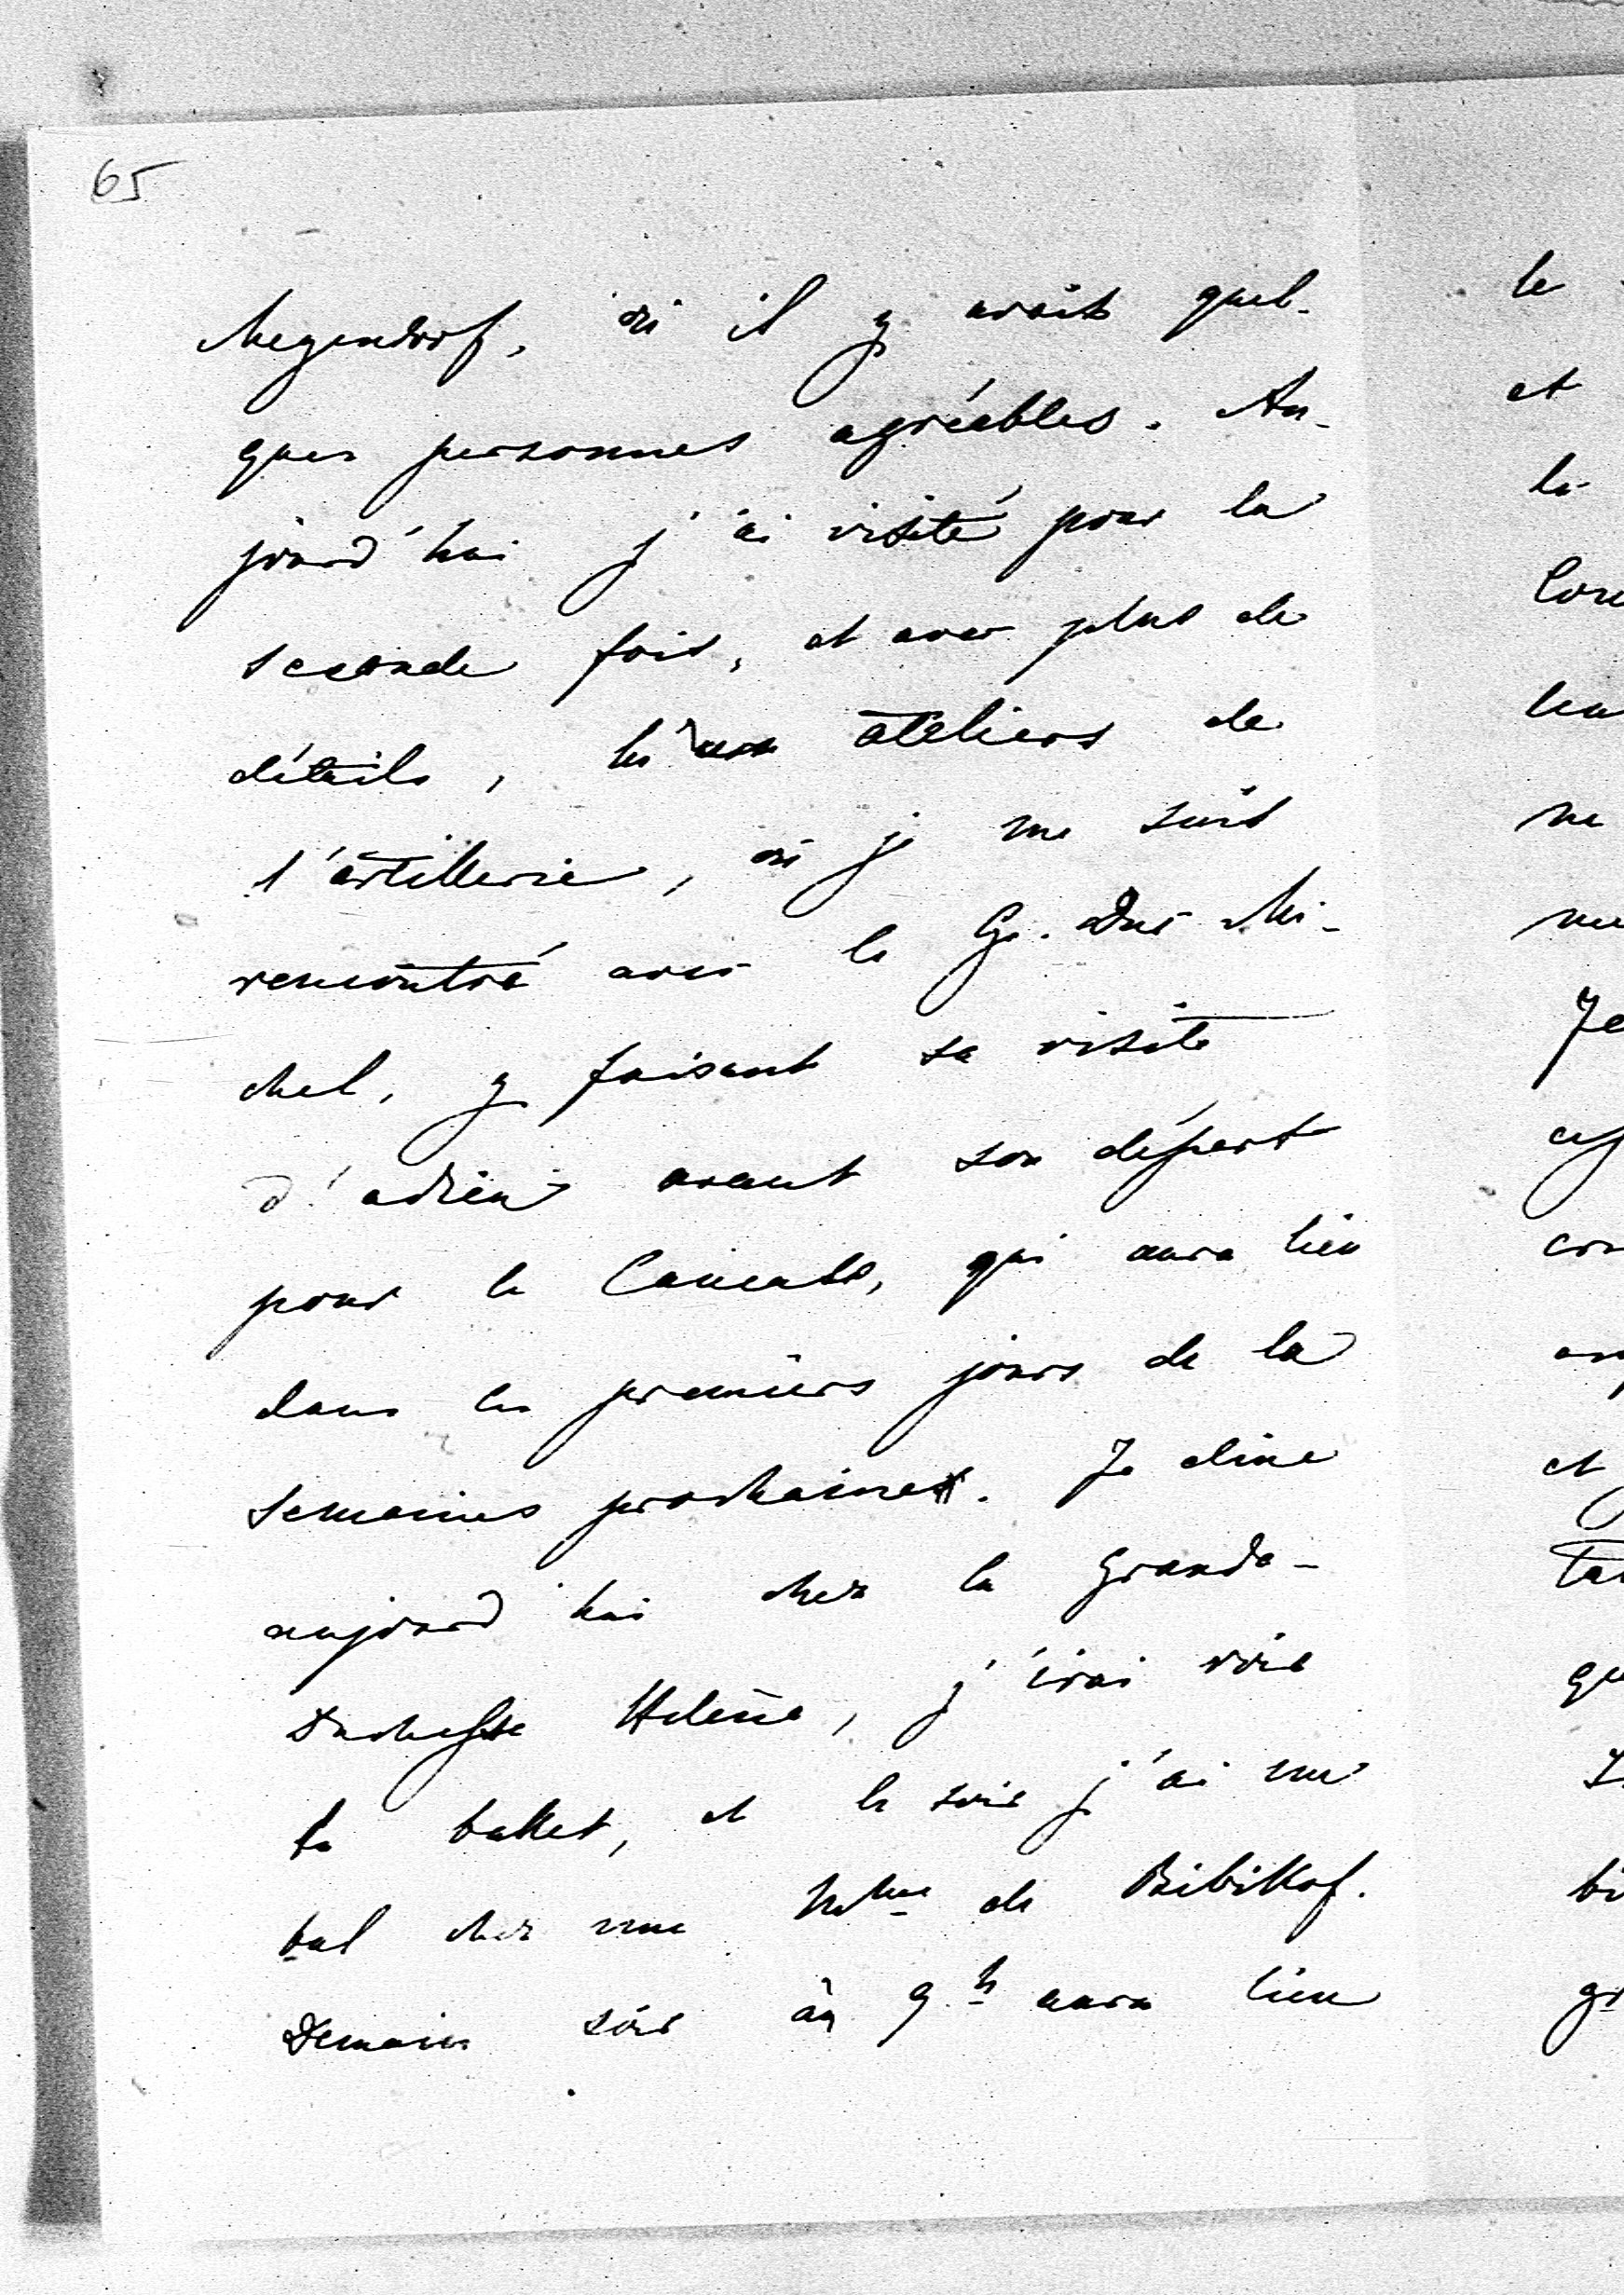 65
Meyendorf, où il y avait quel-
ques personnes agréables. Au-
jourd'hui j'ai visité pour la
seconde fois, et avec plus de
détails, les ateliers de
l'artillerie, où je me suis
rencontré avec le Gr. Duc Mi-
chel, y faisant sa visite
d'adieu avant son départ
pour le Caucase, qui aura lieu
dans les premiers jours de la
semaines prochaine. Je dine
aujourd'hui chez la Grande-
Duchesse Helène, j'irai voir
le ballet, et le soir j'ai un
bal chez une Mme de Bibikof.
Demain soir à 9h aura lieu
le
et
la
ne
et